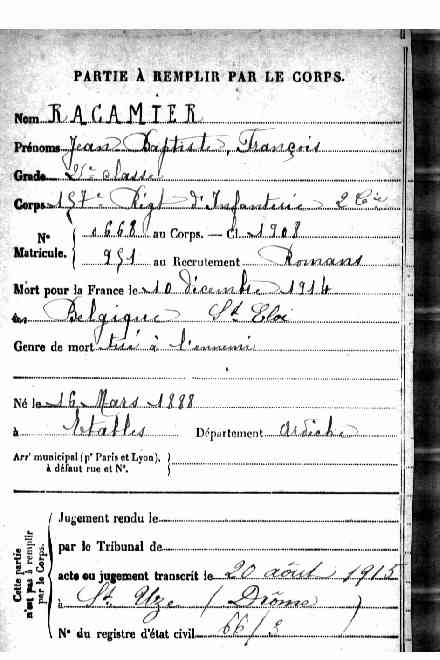 PARTIE À REMPLIR PAR LE CORPS.
Nom RACAMIER
Prénoms Jean Baptiste, François
Grade 2e classe
Corps 157e Régt d'Infanterie 2 Cie
N° Matricule. 0668 au Corps. — Cl 1908
951 au Recrutement Romans
Mort pour la France le 10 décembre 1914
à Belgique St Eloi
Genre de mort tué à l'ennemi
Né le 16 Mars 1888
à Etables Département Ardèche
Arrt municipal (pr Paris et Lyon), à défaut rue et N°.
Cette partie n'est pas à remplir par le Corps.
Jugement rendu le
par le Tribunal de
acte ou jugement transcrit le 20 août 1915
à St Uze (Drôme)
N° du registre d'état civil 66/